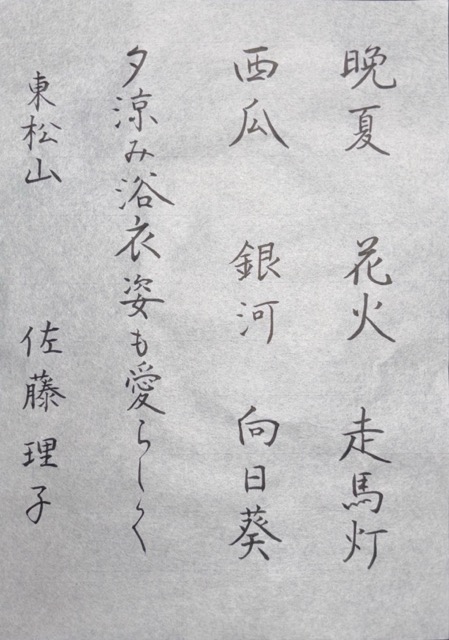 晩夏 花火 走馬灯
西瓜 銀河 向日葵
夕涼み浴衣姿も愛らしく
東松山 佐藤理子